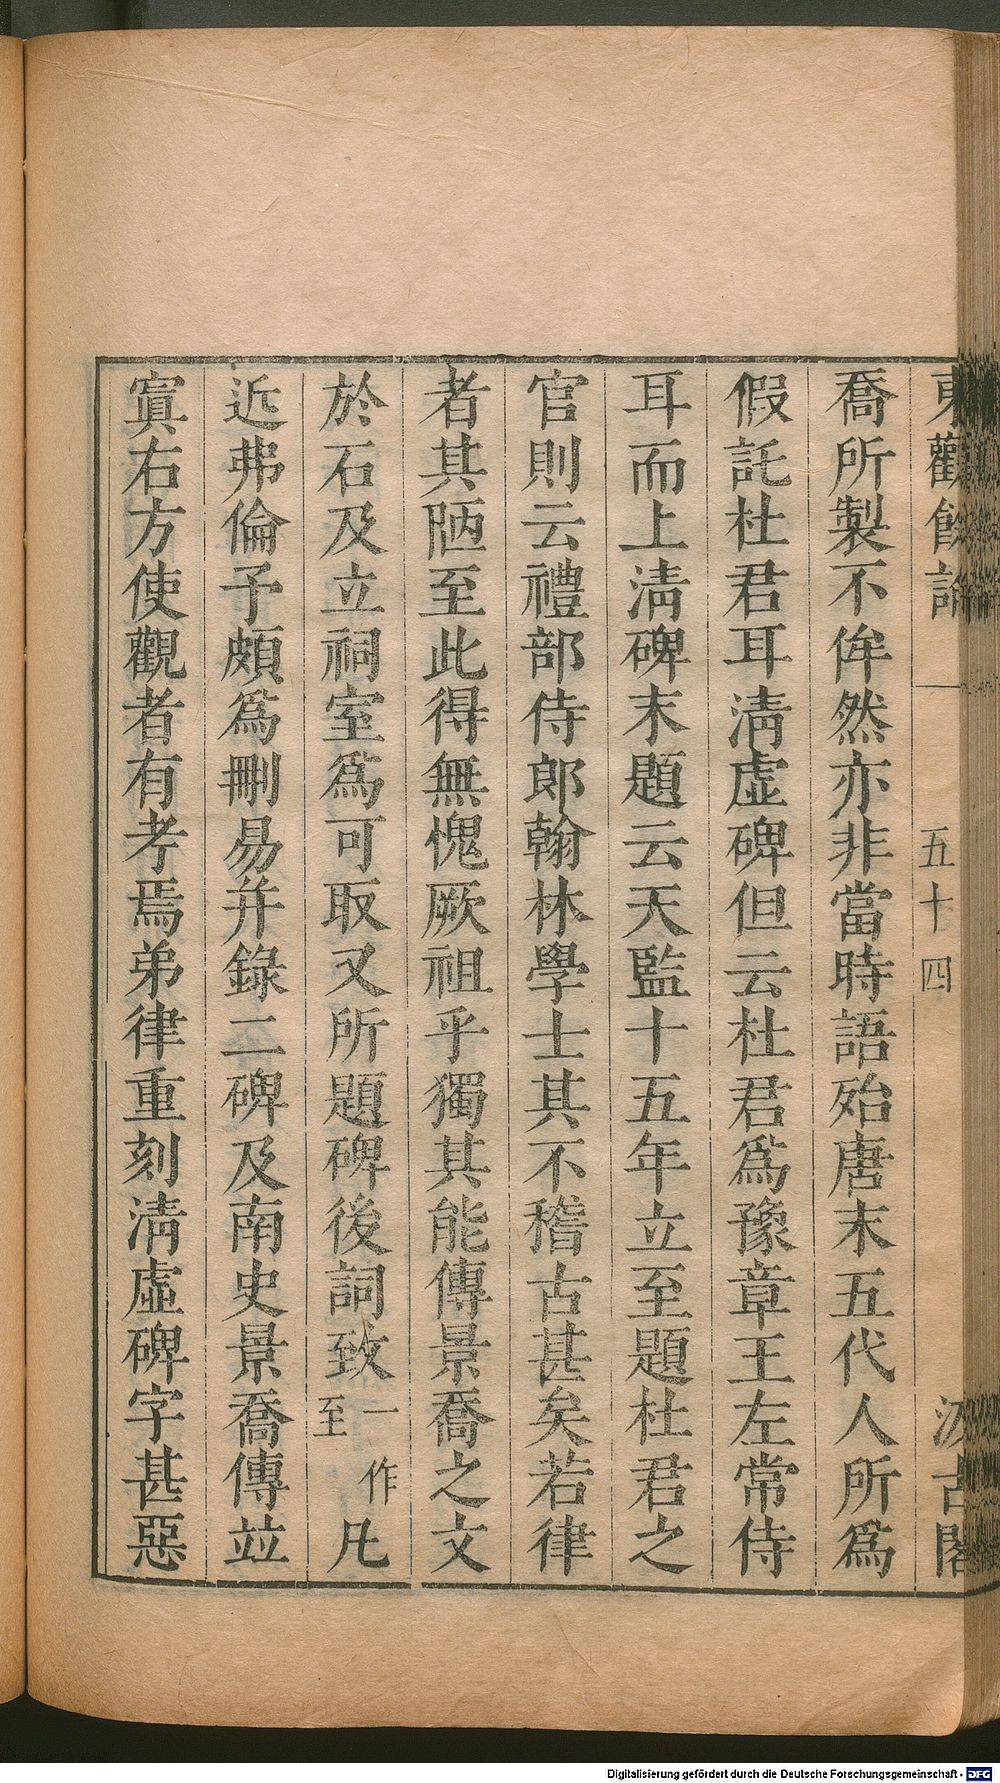 東觀餘論 五十四 汲古閣
喬所製不侔然亦非當時語殆唐末五代人所爲
假託杜君耳淸虛碑但云杜君爲豫章王左常侍
耳而上淸碑末題云天監十五年立至題杜君之
官則云禮部侍郎翰林學士其不稽古甚矣若律
者其陋至此得無愧厥祖乎獨其能傳景喬之文
於石及立祠室爲可取又所題碑後詞致一作至凡
近弗倫予頗爲刪易并錄二碑及南史景喬傳竝
寘右方使觀者有考焉弟律重刻淸虛碑字甚惡
Digitalisierung gefördert durch die Deutsche Forschungsgemeinschaft - DFG